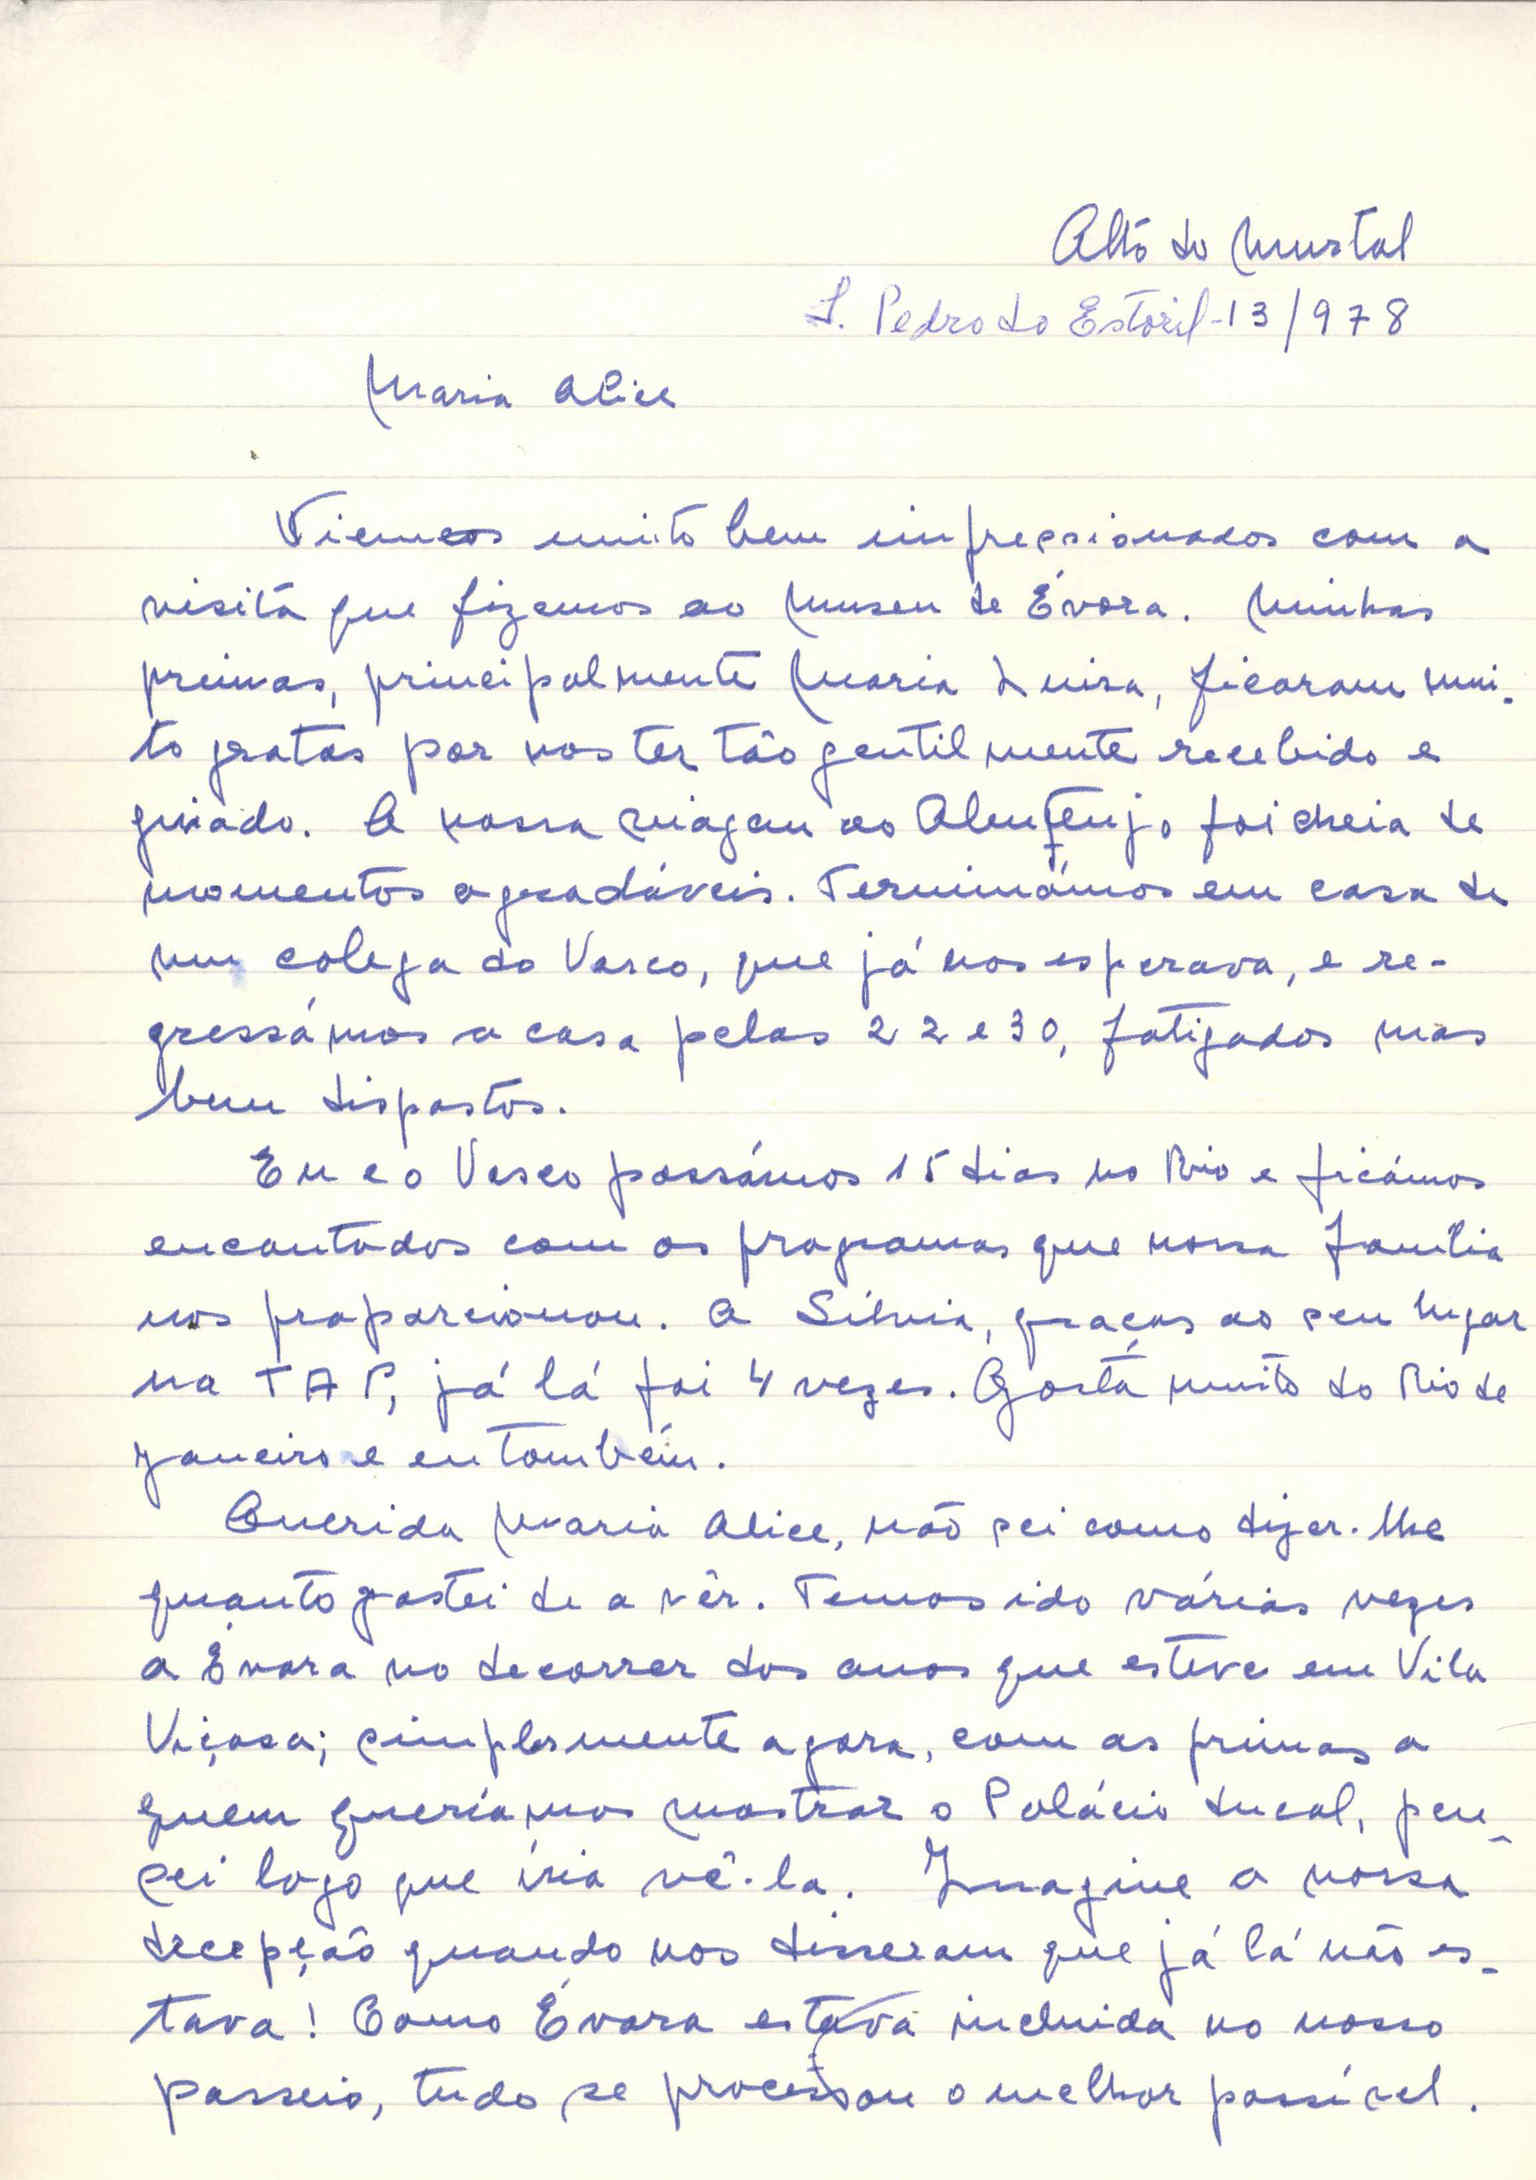 Alto do Murtal
S. Pedro do Estoril-13/978
Maria Alice
Viemos muito bem impressionados com a
visita que fizemos ao Museu de Évora. Minhas
primas, principalmente Maria Luisa, ficaram mui-
to gratas por nos ter tão gentilmente recebido e
guiado. A nossa viagem ao Alentejo foi cheia de
momentos agradáveis. Terminámos em casa de
um colega do Vasco, que já nos esperava, e re-
gressámos a casa pelas 22 e 30, fatigados mas
bem dispostos.
Eu e o Vasco passámos 15 dias no Rio e ficámos
encantados com os programas que nossa família
nos proporcionou. A Sílvia, graças ao seu lugar
na TAP, já lá foi 4 vezes. Gosta muito do Rio de
Janeiro e eu também.
Querida Maria Alice, não sei como dizer-lhe
quanto gostei de a vêr. Temos ido várias vezes
a Évora no decorrer dos anos que esteve em Vila
Viçosa; simplesmente agora, com as primas a
quem queríamos mostrar o Palácio ducal, pen-
sei logo que iria vê-la. Imagine a nossa
decepção quando nos disseram que já lá não es-
tava! Como Évora estava incluida no nosso
passeio, tudo se processou o melhor possível.